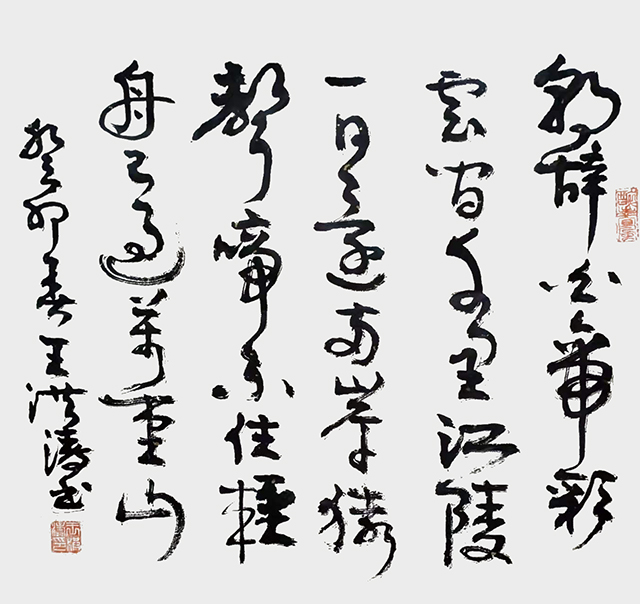 朝辞白帝彩
雲间千里江陵
一日还两岸猿
聲啼不住轻
舟已过萬重山
癸卯春王洪涛书